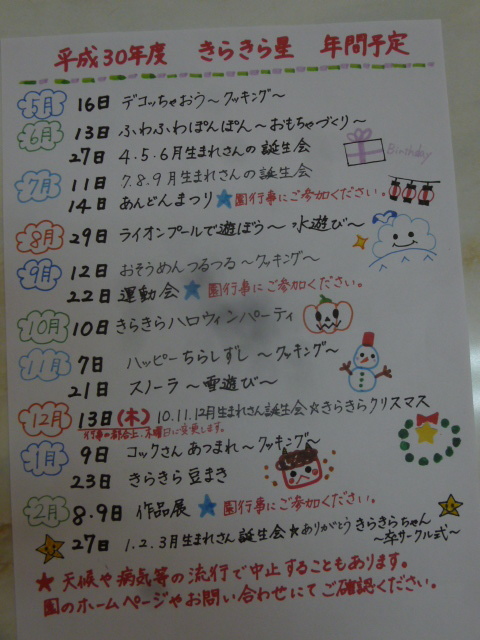 平成30年度 きらきら星 年間予定
5月 16日 デコッちゃおう〜クッキング〜
6月 13日 ふわふわぽんぽん〜おもちゃづくり〜
27日 4.5.6月生まれさんの誕生会
Birthday
7月 11日 7.8.9月生まれさんの誕生会
14日 あんどんまつり★園行事にご参加ください。
8月 29日 ライオンプールで遊ぼう〜水遊び〜
9月 12日 おそうめんつるつる〜クッキング〜
22日 運動会★園行事にご参加ください。
10月 10日 きらきらハロウィンパーティ
11月 7日 ハッピーちらしずし〜クッキング〜
21日 スノーラ〜雪遊び〜
12月 13日(木) 10.11.12月生まれさん誕生会☆きらきらクリスマス
行事の都合上、木曜日に変更します。
1月 9日 コックさんあつまれ〜クッキング〜
23日 きらきら豆まき
2月 8.9日 作品展★園行事にご参加ください。
27日 1.2.3月生まれさん誕生会★ありがとうきらきらちゃん
〜卒サークル式〜
★天候や病気等の流行で中止することもあります。
園のホームページやお問い合わせにてご確認ください。